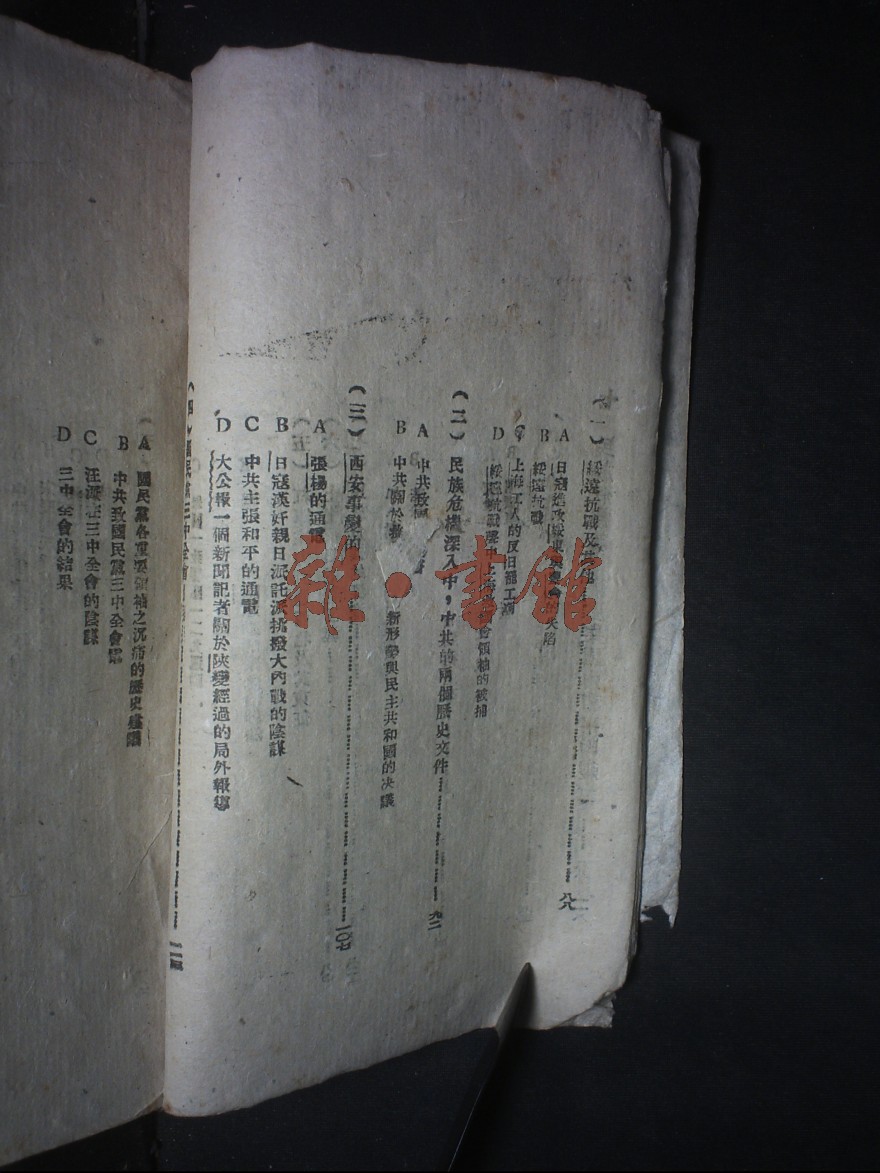 (一) 綏遠抗戰及其
八九
A 日寇進攻綏東與 會的失陷
B 綏遠抗戰
C 上海工人的反日罷工潮
D 綏遠抗戰 領袖的被捕
(二) 民族危機深入中，中共的兩個歷史文件
九二
A 中共致國 書
B 中共關於 新形勢與民主共和國的決議
(三) 西安事變的
A 張楊的通電
B 日寇漢奸親日派託派挑撥大內戰的陰謀
C 中共主張和平的通電
D 大公報一個新聞記者關於陝變經過的局外報導
(四) 國民黨三中全會
A 國民黨各重要領袖之沉痛的歷史
B 中共致國民黨三中全會電
C 汪 在三中全會的陰謀
D 三中全會的結果
雜·書館